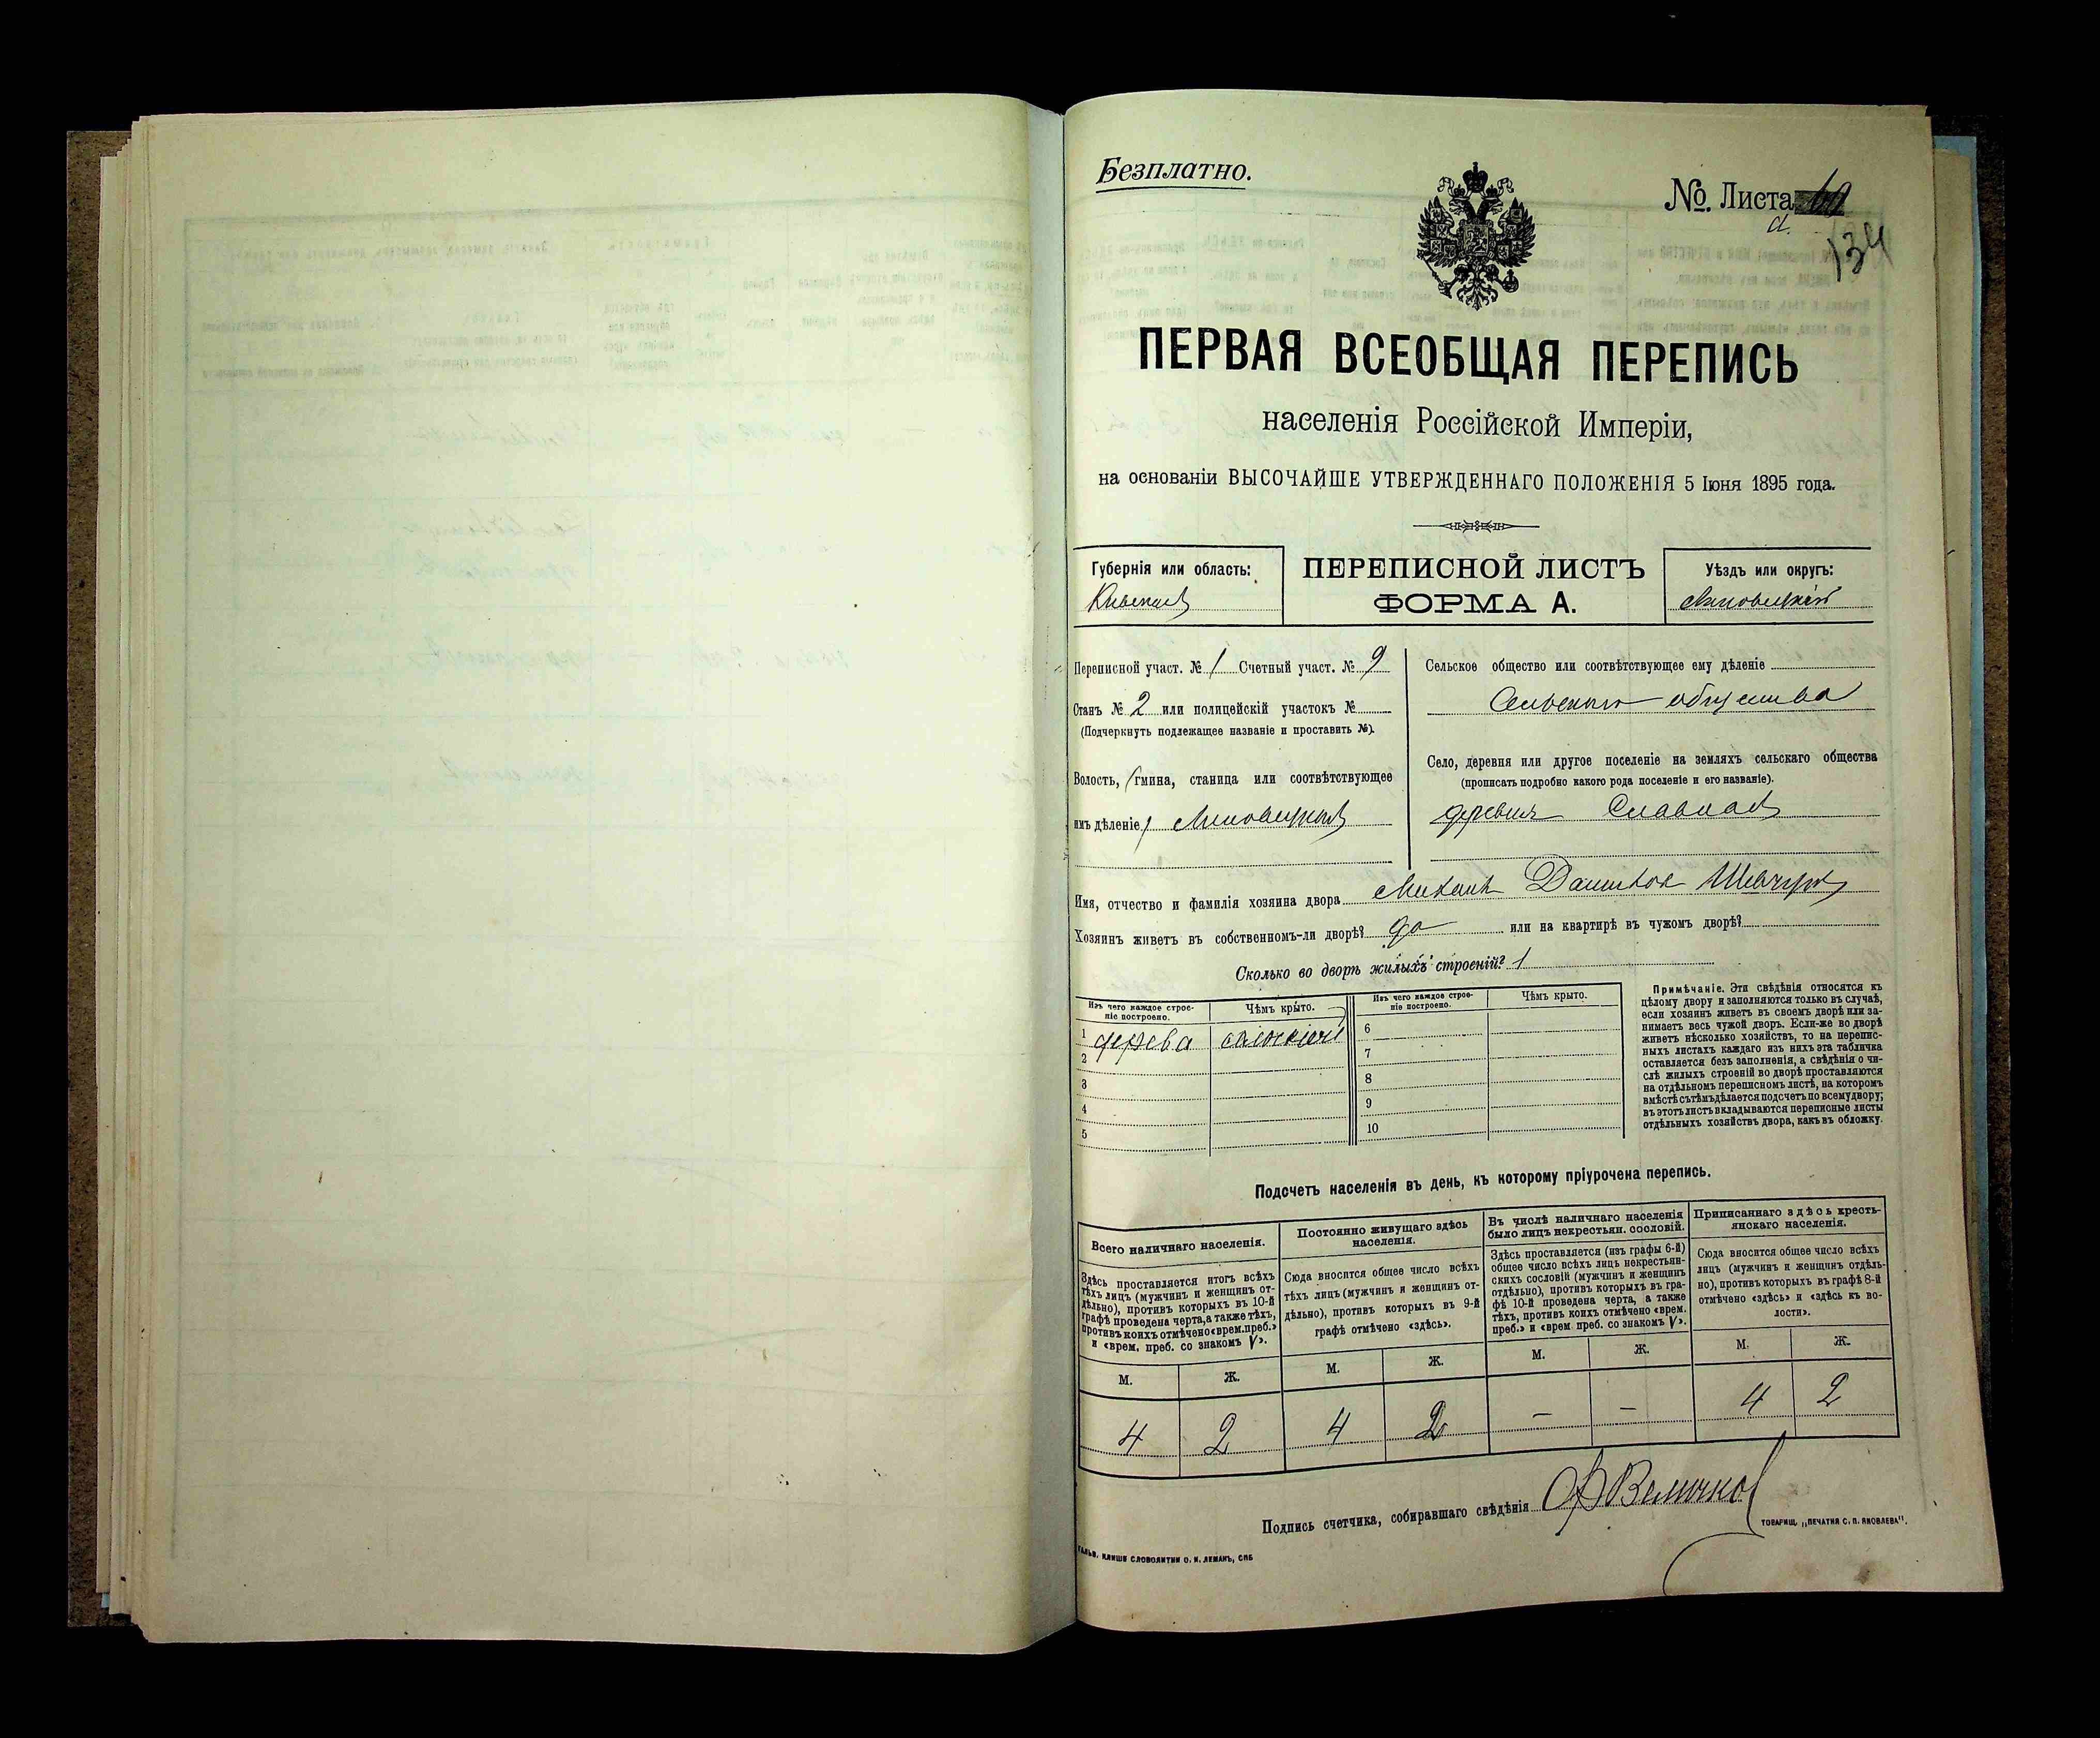 Безплатно.
№. Листа 69
d.
134
ПЕРВАЯ ВСЕОБЩАЯ ПЕРЕПИСЬ
населенія Россійской Имперіи,
на основаніи ВЫСОЧАЙШЕ УТВЕРЖДЕННАГО ПОЛОЖЕНІЯ 5 Іюня 1895 года.
Губернія или область:
Кіевская
ПЕРЕПИСНОЙ ЛИСТЪ
ФОРМА А.
Уѣздъ или округъ:
Липовецкій
Переписной участ. № 1 Счетный участ. № 9
Станъ № 2 или полицейскій участокъ №
(Подчеркнуть подлежащее названіе и проставить №).
Волость, (гмина, станица или соотвѣтствующее
имъ дѣленіе) Липовецкая
Сельское общество или соотвѣтствующее ему дѣленіе
общества
Село, деревня или другое поселеніе на земляхъ сельскаго общества
(прописать подробно какого рода поселеніе и его названіе).
деревня Славная
Имя, отчество и фамилія хозяина двора Шевчукъ
Хозяинъ живетъ въ собственномъ-ли дворѣ? да или на квартирѣ въ чужомъ дворѣ?
Сколько во дворѣ жилыхъ строеній? 1
Изъ чего каждое строе-
ніе построено.
Чѣмъ крыто.
Изъ чего каждое строе-
ніе построено.
Чѣмъ крыто.
1 дерева соломою 6
2 7
3 8
4 9
5 10
Примѣчаніе. Эти свѣдѣнія относятся къ
цѣлому двору и заполняются только въ случаѣ,
если хозяинъ живетъ въ своемъ дворѣ или за-
нимаетъ весь чужой дворъ. Если-же во дворѣ
живетъ нѣсколько хозяйствъ, то на перепис-
ныхъ листахъ каждаго изъ нихъ эта табличка
оставляется безъ заполненія, а свѣдѣнія о чи-
слѣ жилыхъ строеній во дворѣ проставляются
на отдѣльномъ переписномъ листѣ, на которомъ
вмѣстѣ съ тѣмъ дѣлается подсчетъ по всему двору;
въ этотъ листъ вкладываются переписные листы
отдѣльныхъ хозяйствъ двора, какъ въ обложку.
Подсчетъ населенія въ день, къ которому пріурочена перепись.
Всего наличнаго населенія.
Здѣсь проставляется итогъ всѣхъ
тѣхъ лицъ (мужчинъ и женщинъ от-
дѣльно), противъ которыхъ въ 10-й
графѣ проведена черта, а также тѣхъ,
противъ коихъ отмѣчено «врем. преб.»
и «врем. преб. со знакомъ V».
М. Ж.
4 2
Постоянно живущаго здѣсь
населенія.
Сюда вносится общее число всѣхъ
тѣхъ лицъ (мужчинъ и женщинъ от-
дѣльно), противъ которыхъ въ 9-й
графѣ отмѣчено «здѣсь».
М. Ж.
4 2
Въ числѣ наличнаго населенія
было лицъ некрестьян. сословій.
Здѣсь проставляется (изъ графы 6-й)
общее число всѣхъ лицъ некрестьян-
скихъ сословій (мужчинъ и женщинъ
отдѣльно), противъ которыхъ въ гра-
фѣ 10-й проведена черта, а также
тѣхъ, противъ коихъ отмѣчено «врем.
преб.» и «врем преб. со знакомъ V».
М. Ж.
— —
Приписаннаго здѣсь кресть-
янскаго населенія.
Сюда вносится общее число всѣхъ
лицъ (мужчинъ и женщинъ отдѣль-
но), противъ которыхъ въ графѣ 8-й
отмѣчено «здѣсь» и «здѣсь къ во-
лости».
М. Ж.
4 2
Подпись счетчика, собиравшаго свѣдѣнія Величко
ТОВАРИЩ. „ПЕЧАТНЯ С. П. ЯКОВЛЕВА".
ГАЛЬВ. КЛИШЕ СЛОВОЛИТНИ О. И. ЛЕМАНЪ, СПБ